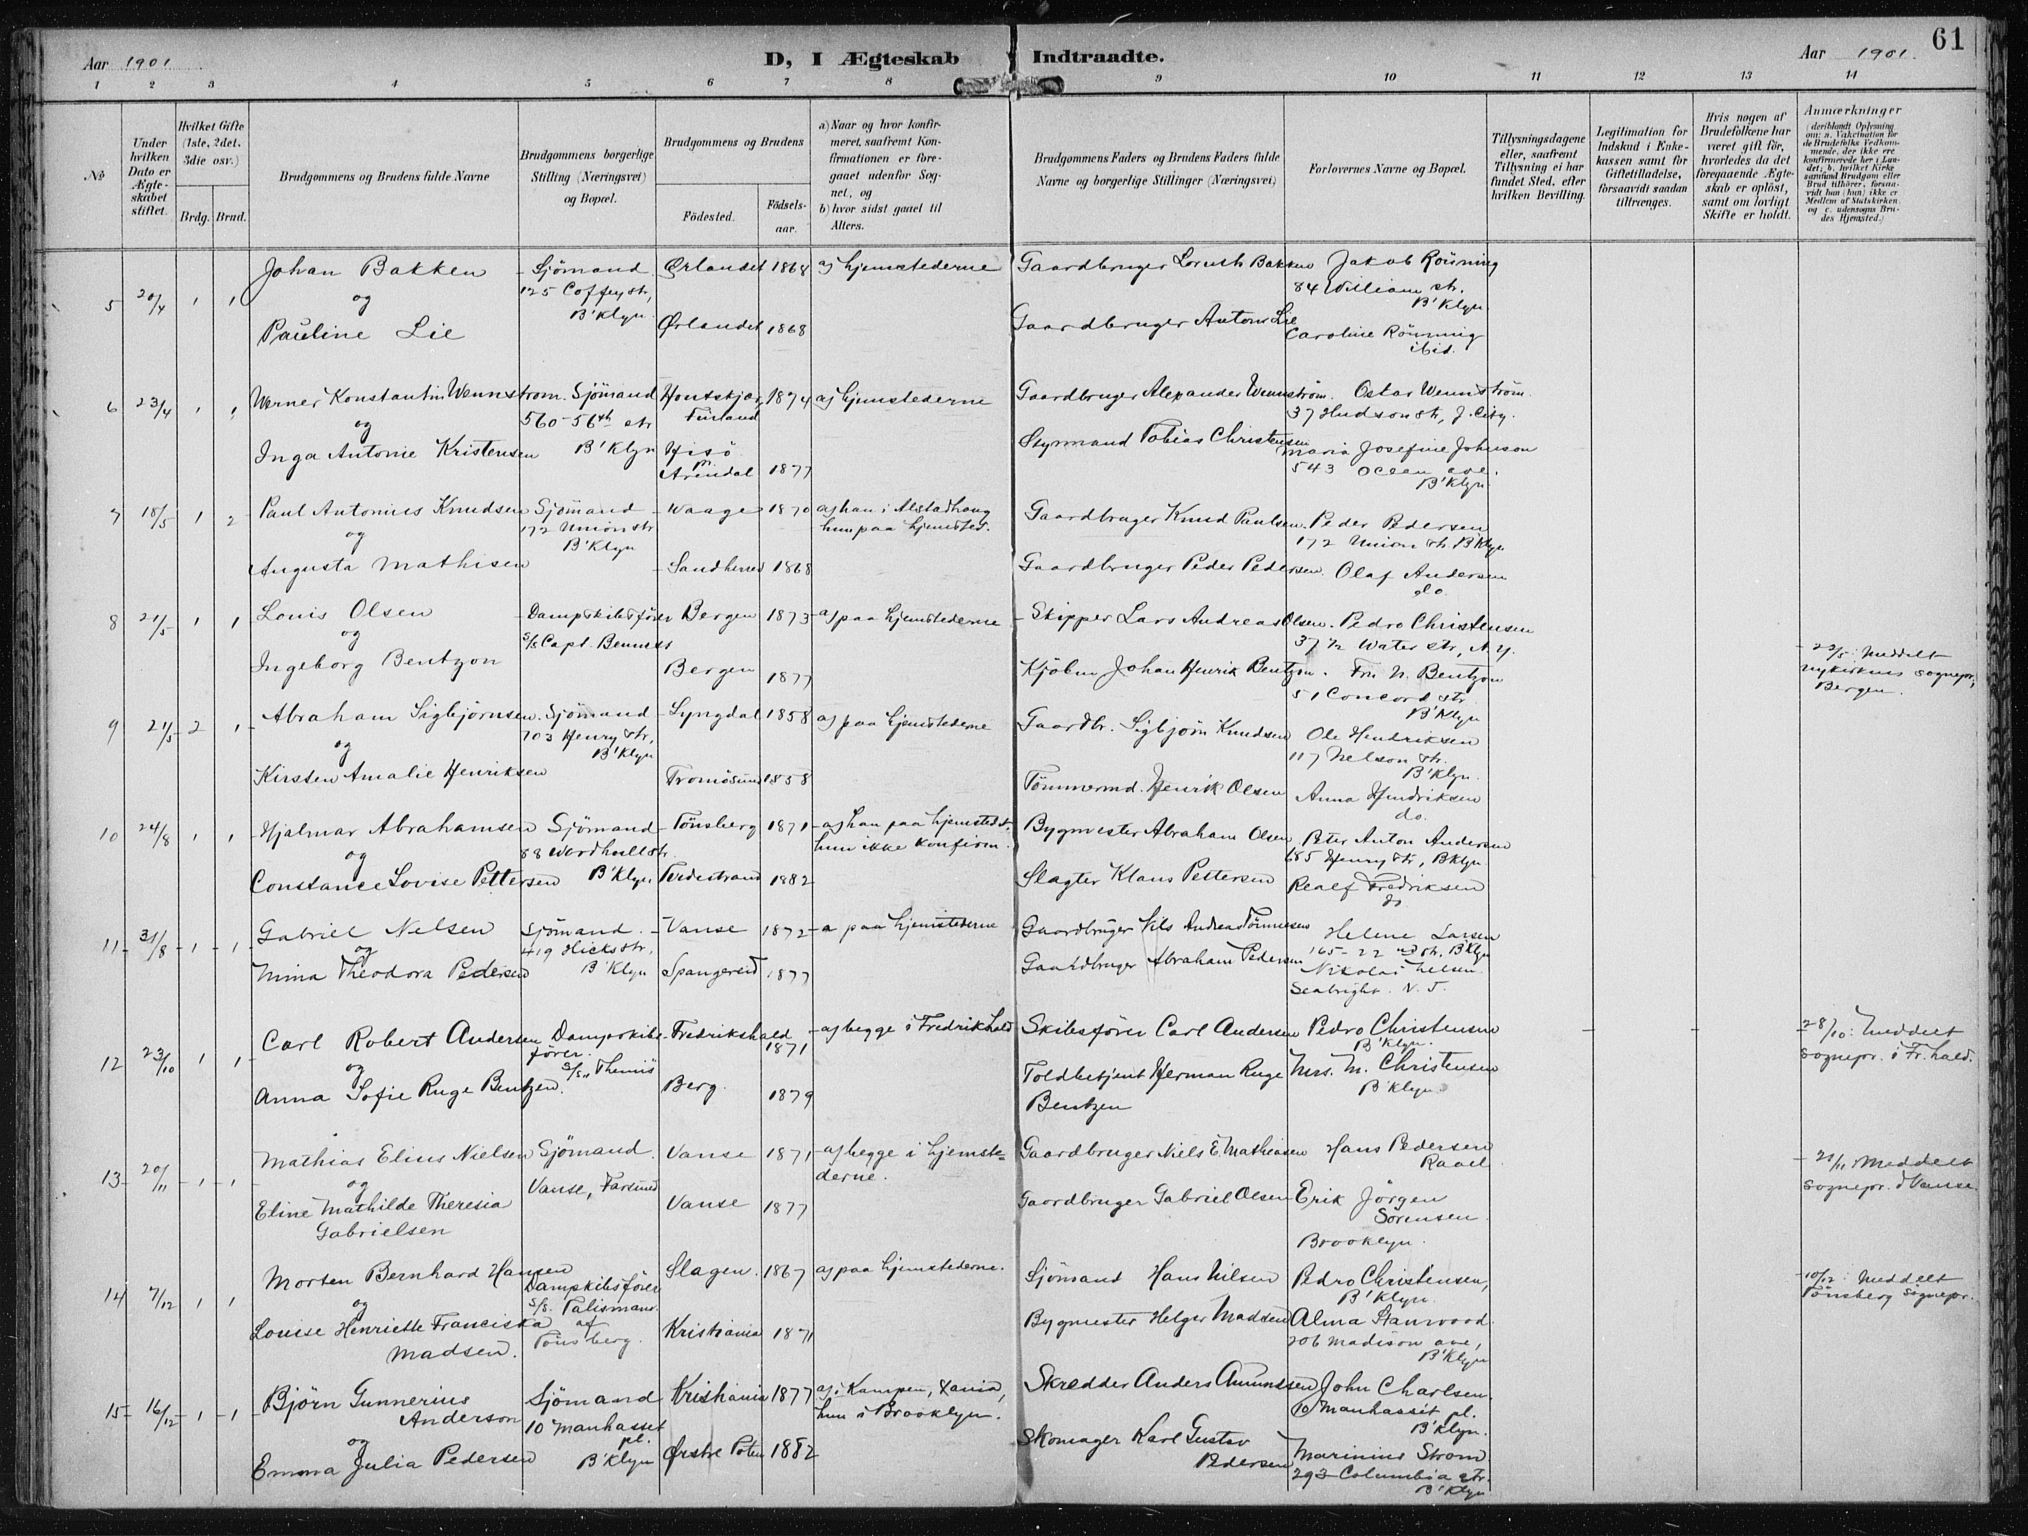 61
Aar 1901
D, I Ægteskab Indtraadte.
Aar 1901.
1 2 3 4 5 6 7 8 9 10 11 12 13 14
No
Under hvilken Dato er Ægteskabet stiftet.
Hvilket Gifte (1ste, 2det, 3die osv.)
Brdg. Brud.
Brudgommens og Brudens fulde Navne
Brudgommens borgerlige Stilling (Næringsvei) og Bopæl.
Brudgommens og Brudens
Födested.
Födselsaar.
a) Naar og hvor konfirmeret, saafremt Konfirmationen er foregaaet udenfor Sognet, og
b) hvor sidst gaaet til Alters.
Brudgommens Faders og Brudens Faders fulde Navne og borgerlige Stillinger (Næringsvei)
Forlovernes Navne og Bopæl.
Tillysningsdagene eller, saafremt Tillysning ei har fundet Sted, efter hvilken Bevilling.
Legitimation for Indskud i Enkekassen samt for Giftetilladelse, forsaavidt saadan tiltrænges.
Hvis nogen af Brudefolkene har været gift för, hvorledes da det foregaaende Ægteskab er oplöst, samt om lovligt Skifte er holdt.
Anmærkninger
(deriblandt Oplysning om: a. Vakcination for de Brudefolks Vedkommende, der ikke ere konfirmerede her i Landet; b. hvilket Kirkesamfund Brudgom eller Brud tilhörer, forsaavidt han (hun) ikke er Medlem af Statskirken, og c. udensogns Brudes Hjemsted.)
5 20/4 1 1
Johan Bakken
og
Pauline Lie
Sjömand
125 Coffey str,
B'Klyn.
Ørlandet 1868
Ørlandet 1868
a) hjemstederne
Gaardbruger Bakken
Gaardbruger Anton Lie
Jakob Rönning
84 William str.
B'Klyn.
Caroline Rönning
ibid.
6 23/4 1 1
Werner Konstantin Wennström.
og
Inga Antonie Kristensen
Sjömand
560-56th str
B'Klyn
Finland 1874
Hisö
pr
Arendal 1877
a) hjemstederne
Gaardbruger Alexander Wennström.
Styrmand Tobias Christensen
Oskar Wennström.
37 Hudson str, J. City.
Maria Josefine Johnson
543 Ocean ave.
B'Klyn.
7 18/5 1 2
Paul Antonius Knudsen
og
Augusta Mathisen
Sjömand
172 Union str
B'Klyn
Waage 1870
Sandherred 1868
a) han i Alstadhoug
hun paa hjemsted.
Gaardbruger Knud Paulsen.
Gaardbruger Peder Pedersen.
Peder Pedersen
172 Union str. B'Klyn
Olaf Andersen
do.
8 21/5 1 1
Louis Olsen
og
Ingeborg Bentzon
Dampskibsförer
S/S Capt. Bennett
Bergen 1873
Bergen 1877
a) paa hjemstederne
Skipper Lars Andreas Olsen.
Kjöbm. Johan Henrik Bentzon.
Pedro Christensen
37 1/2 Water str, N.Y.
Fru N. Bentzon
51 Concord str.
B'Klyn
23/5: Meddelt
Nykirkens sognepr,
Bergen.
9 21/5 2 1
Abraham Sigbjörnsen.
og
Kirsten Amalie Henriksen
Sjömand
703 Henry str,
B'Klyn
Lyngdal 1858
Tromösund 1858
a) paa hjemstederne
Gaardbr. Sigbjörn Knudsen
Tömmermd. Henrik Olsen
Ole Hendriksen
117 Nelson str.
B'Klyn.
Anna Hendriksen
do.
10 24/8 1 1
Hjalmar Abrahamsen
og
Constance Lovise Pettersen
Sjömand
B'Klyn.
Tönsberg 1871
Tvedestrand 1882
a) han paa hjemstedet.
hun ikke konfirm.
Bygmester Abraham Olsen
Slagter Klaus Pettersen
Peter Anton Andersen
685 Henry str, B'Klyn.
Realf Fredriksen
do
11 31/8 1 1
Gabriel Nelsen
og
Mina Theodora Pedersen
Sjömand.
419 Hicks str.
B'Klyn
Vanse 1872
Spangereid 1877
a paa hjemstederne
Gaardbruger Nils Andreas Tönnesen
Gaardbruger Abraham Pedersen
Helene Larsen
165-22nd str, B'Klyn
Nikolai Nelsen.
Seabright. N.J.
12 23/10 1 1
Carl Robert Andersen
og
Anna Sofie Ruge Bentzen.
Dampskibsförer.
S/S "Themis
Fredrikshald 1871
Berg. 1879
a) begge i Fredrikshald
Skibsförer Carl Andersen
Toldbetjent Herman Ruge
Bentzen
Pedro Christensen
B'Klyn.
Mrs. M. Christensen
B'Klyn
28/10: Meddelt
sognepr. i Fr.hald.
13 20/11 1 1
Mathias Elius Nielsen
og
Eline Mathilde Theresia
Gabrielsen
Sjömand.
Vanse, Farsund
Vanse 1871
Vanse 1877
a) begge i hjemste-
derne.
Gaardbruger Niels E. Mathiasen
Gaardbruger Gabriel Olsen
Hans Pedersen
Raael
Erik Jörgen
Sörensen
Brooklyn.
21/11 Meddelt
sognepr. i Vanse
14 7/12 1 1
Morten Bernhard Hansen
og
Louise Henriette Franciska
Madsen.
Dampskibsförer
S/S. Talisman.
af
Tönsberg.
Slagen. 1867
Kristiania 1871
a) paa hjemstederne.
Sjömand Hans Nilsen
Bygmester Helger Madsen
Pedro Christensen,
B'Klyn.
Alma Stanwood
206 Madison ave,
B'Klyn
10/12: Meddelt
Tönsberg sognepr.
15 16/12 1 1
Björn Gunnerius
Anderson
og
Emma Julia Pedersen
Sjömand
10 Manhasset
pl.
B'Klyn
Kristiania 1877
Østre Toten 1882
a) i Kampen, Xania,
hun i Brooklyn.
Skredder Anders Amundsen
Skomager Karl Gustav
Pedersen
John Charlsen.
10 Manhasset pl.
B'Klyn.
Marinius Strom
293 Columbia str.
B'Klyn